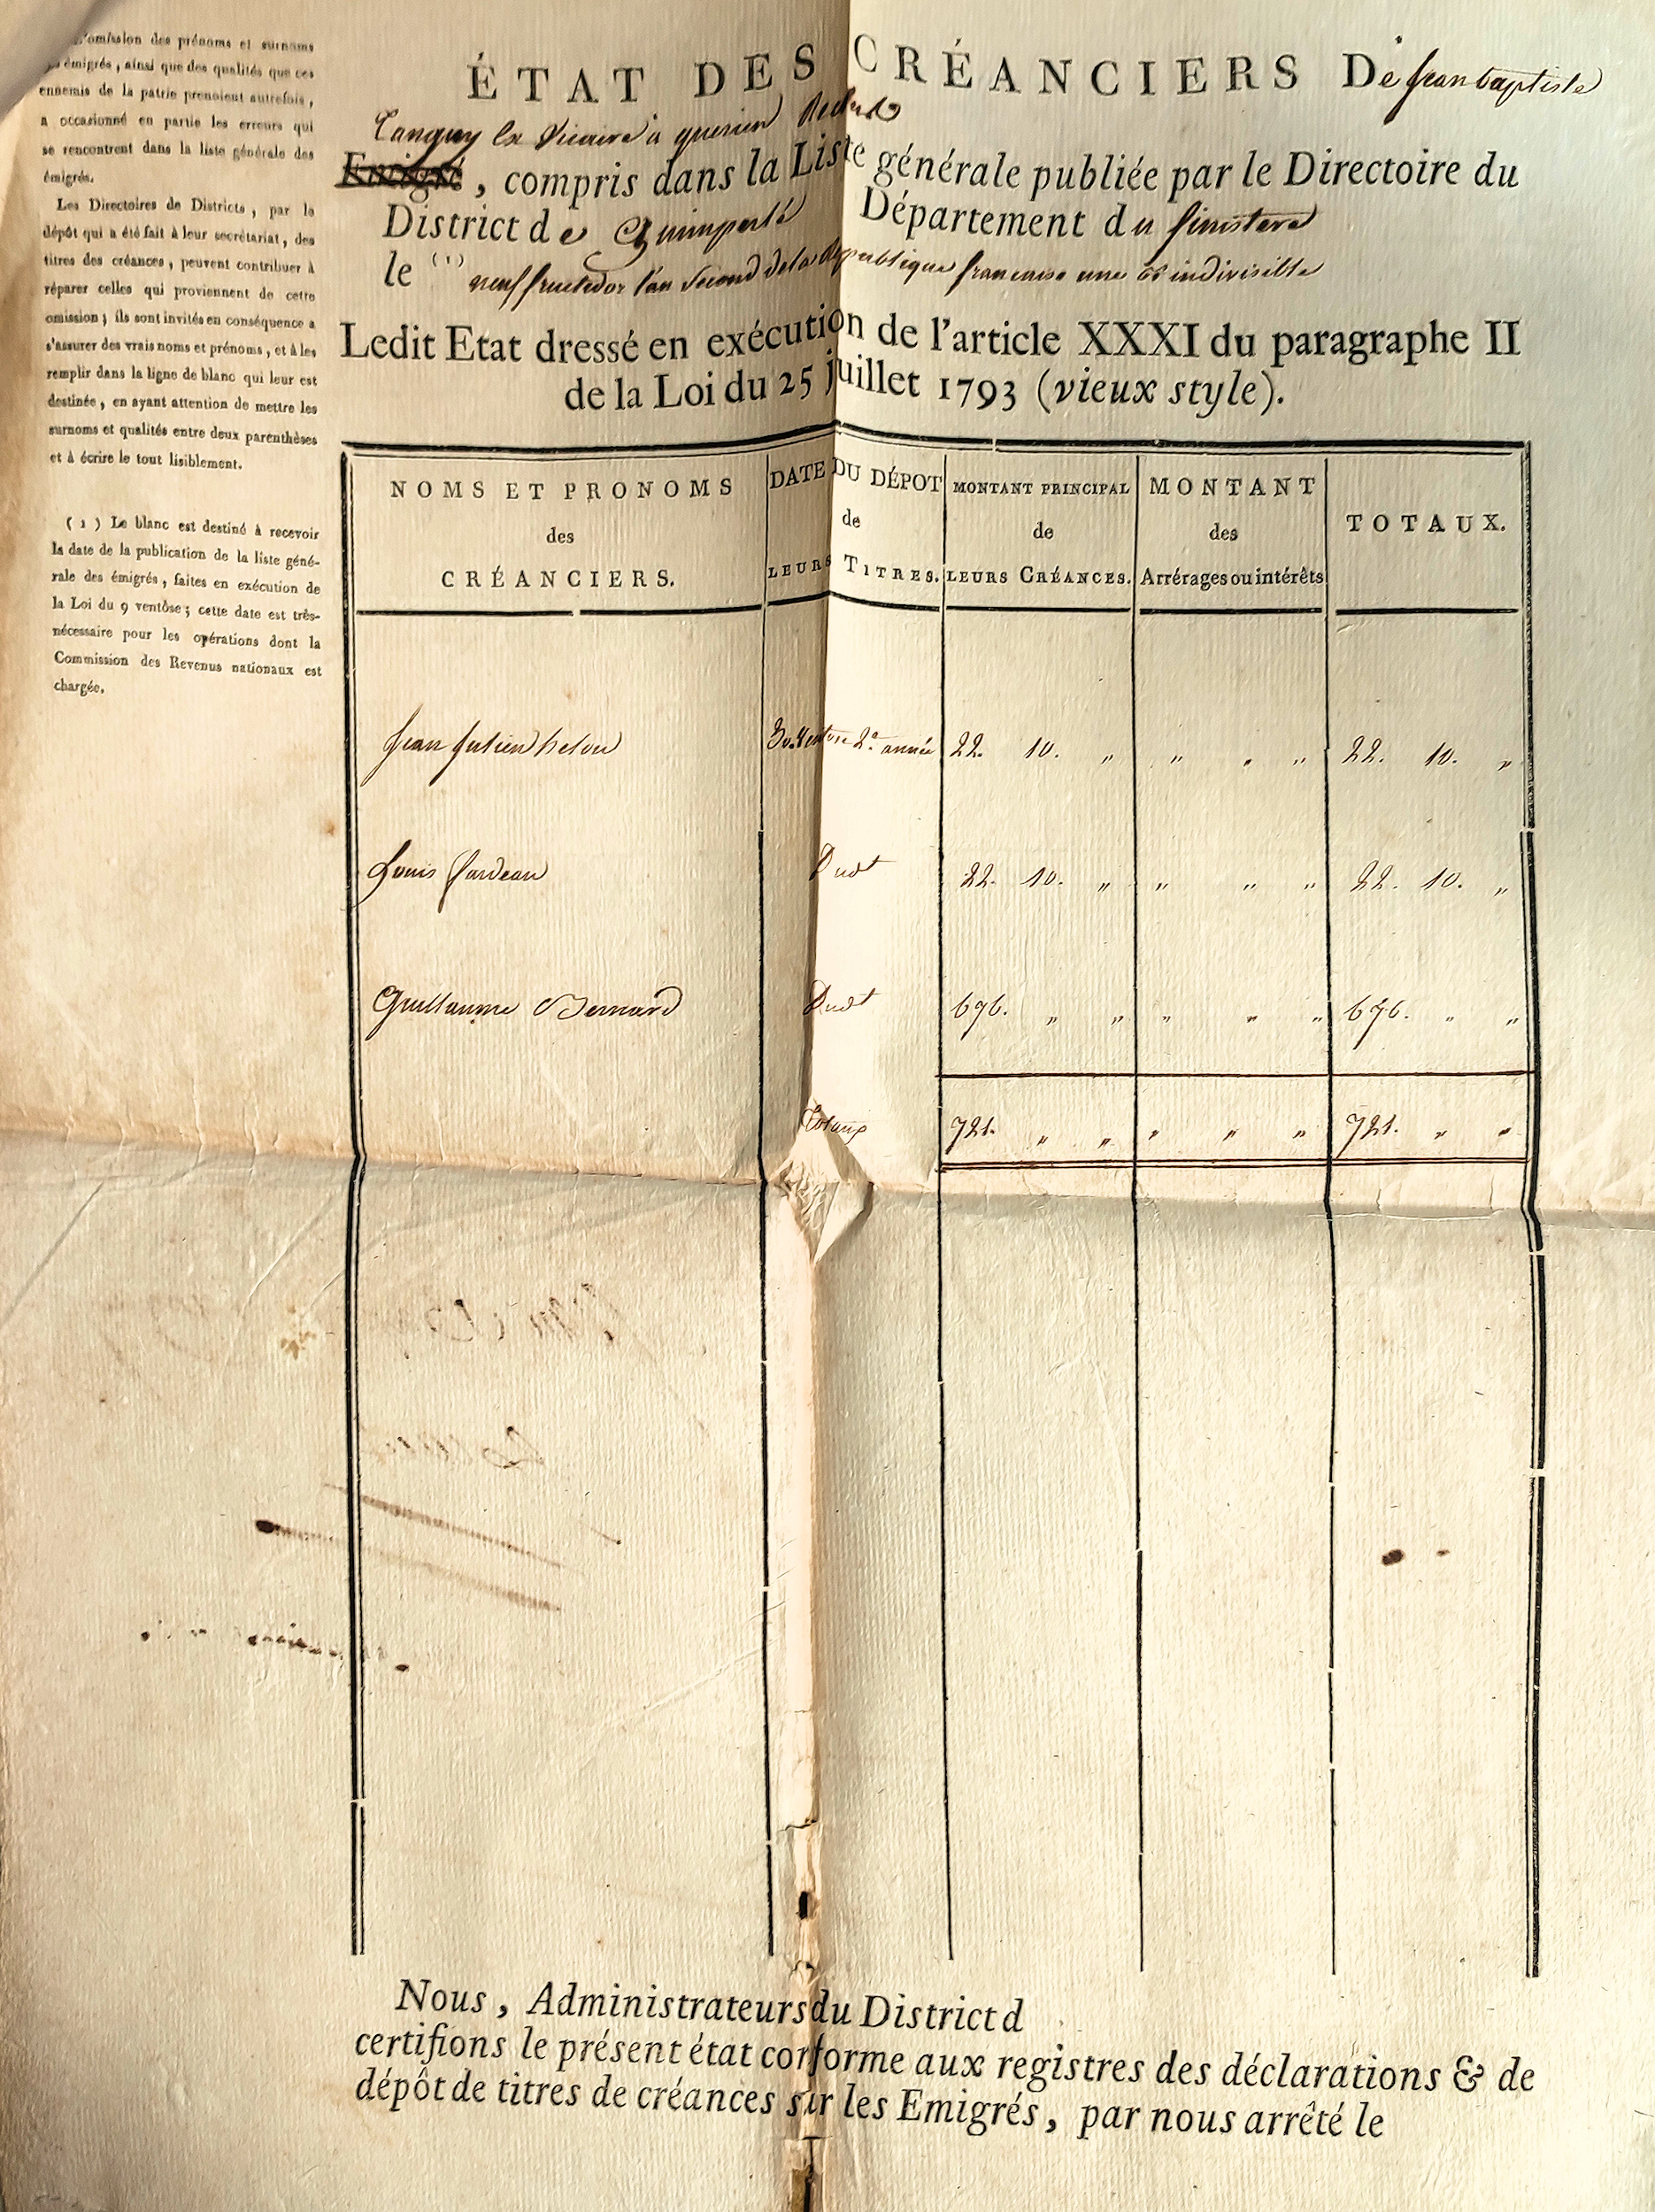 l'omission des prénoms et surnoms
des émigrés, ainsi que des qualités que ces
ennemis de la patrie prenoient autrefois,
a occasionné en partie les erreurs qui
se rencontrent dans la liste générale des
émigrés.
Les Directoires de Districts, par le
dépôt qui a été fait à leur secrétariat, des
titres des créances, peuvent contribuer à
réparer celles qui proviennent de cette
omission; ils sont invités en conséquence a
s'assurer des vrais noms et prénoms, et à les
remplir dans la ligne de blanc qui leur est
destinée, en ayant attention de mettre les
surnoms et qualités entre deux parenthèses
et à écrire le tout lisiblement.
(1) Le blanc est destiné à recevoir
la date de la publication de la liste géné-
rale des émigrés, faites en exécution de
la Loi du 9 ventôse; cette date est très-
nécessaire pour les opérations dont la
Commission des Revenus nationaux est
chargée.
ÉTAT DES CRÉANCIERS De Jean baptiste
Tanguy Ex Vicaire à querrien Reclus
Emigré, compris dans la Liste générale publiée par le Directoire du
District de Quimperlé Département du finistere
le (1) neuf fructidor l'an second de la Republique francaise une et indivisible
Ledit Etat dressé en exécution de l'article XXXI du paragraphe II
de la Loi du 25 juillet 1793 (vieux style).
NOMS ET PRONOMS des CRÉANCIERS.
DATE DU DÉPOT de LEURS TITRES.
MONTANT PRINCIPAL de LEURS CRÉANCES.
MONTANT des Arrérages ou intérêts
TOTAUX.
Jean Julien helou 30. Ventose 2e. année 22. 10. " " " " 22. 10. "
Louis Dudt 22. 10. " " " " 22. 10. "
Guillaume Bernard Dudt 676. " " " " " 676. " "
Totaux 721. " " " " " 721. " "
Nous, Administrateurs du District d
certifions le présent état conforme aux registres des déclarations & de
dépôt de titres de créances sur les Emigrés, par nous arrêté le